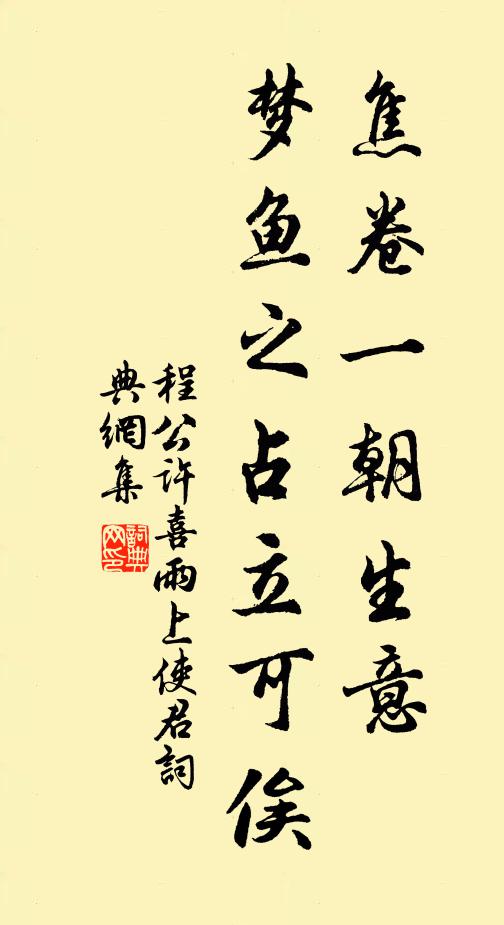 焦卷一朝生意
梦鱼之占立可俟
程公许喜雨上使君詞
典網集
詞典网印